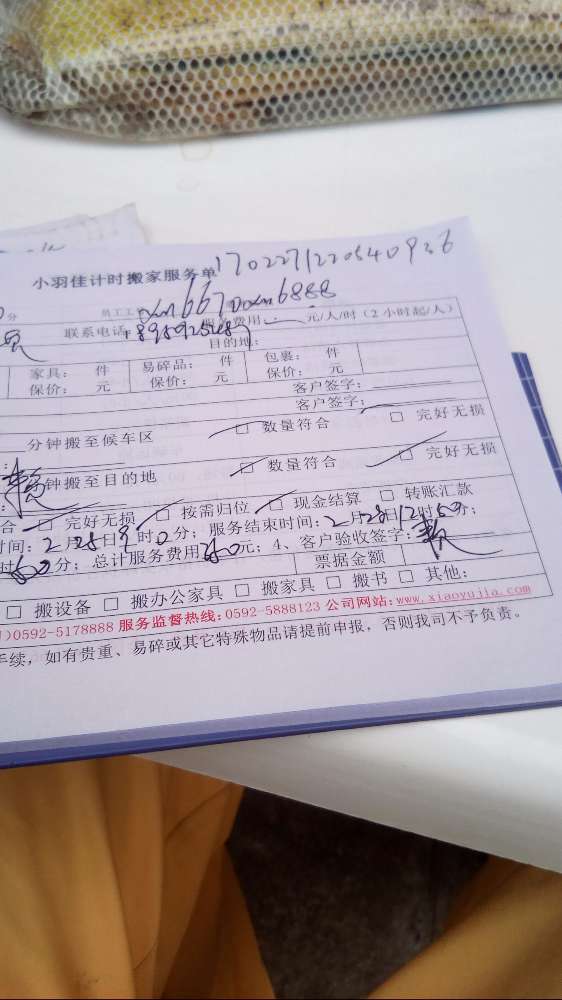 小羽佳计时搬家服务单 170227122054 0936
分 员工工 xm667 xm6888
联系电话 服务费用: 元/人/时(2小时起/人)
目的地:
家具: 件 易碎品: 件 包裹: 件
保价: 元 保价: 元 保价: 元
客户签字:
客户签字:
分钟搬至候车区 □ 数量符合 □ 完好无损
钟搬至目的地 □ 数量符合 □ 完好无损
合 □ 完好无损 □ 按需归位 □ 现金结算 □ 转账汇款
时间: 2月28日9时0分; 服务结束时间: 2月28日12时50分;
时60分; 总计服务费用260元; 4、客户验收签字:
票据金额
□ 搬设备 □ 搬办公家具 □ 搬家具 □ 搬书 □ 其他:
)0592-5178888 服务监督热线: 0592-5888123 公司网站: www.xiaoyujia.com
手续, 如有贵重、易碎或其它特殊物品请提前申报, 否则我司不予负责。